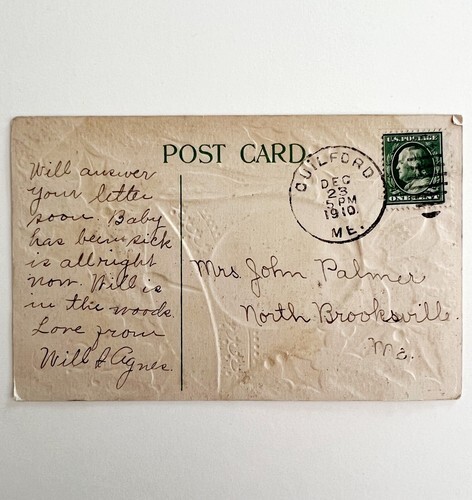 POST CARD.
Will answer
your letter
soon. Baby
has been sick
is allright
now. Will is
in the woods
Love from
Will & Agnes.
GUILFORD
DEC
23
5 PM
1910.
ME.
U.S. POSTAGE
ONE CENT
Mrs. John Palmer
North Brooksville.
Me.